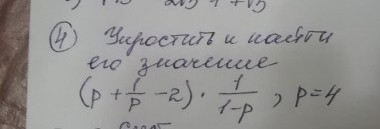 ④ Упростить и найти
его значение
(p + 1/p - 2) · 1/(1-p), p=4